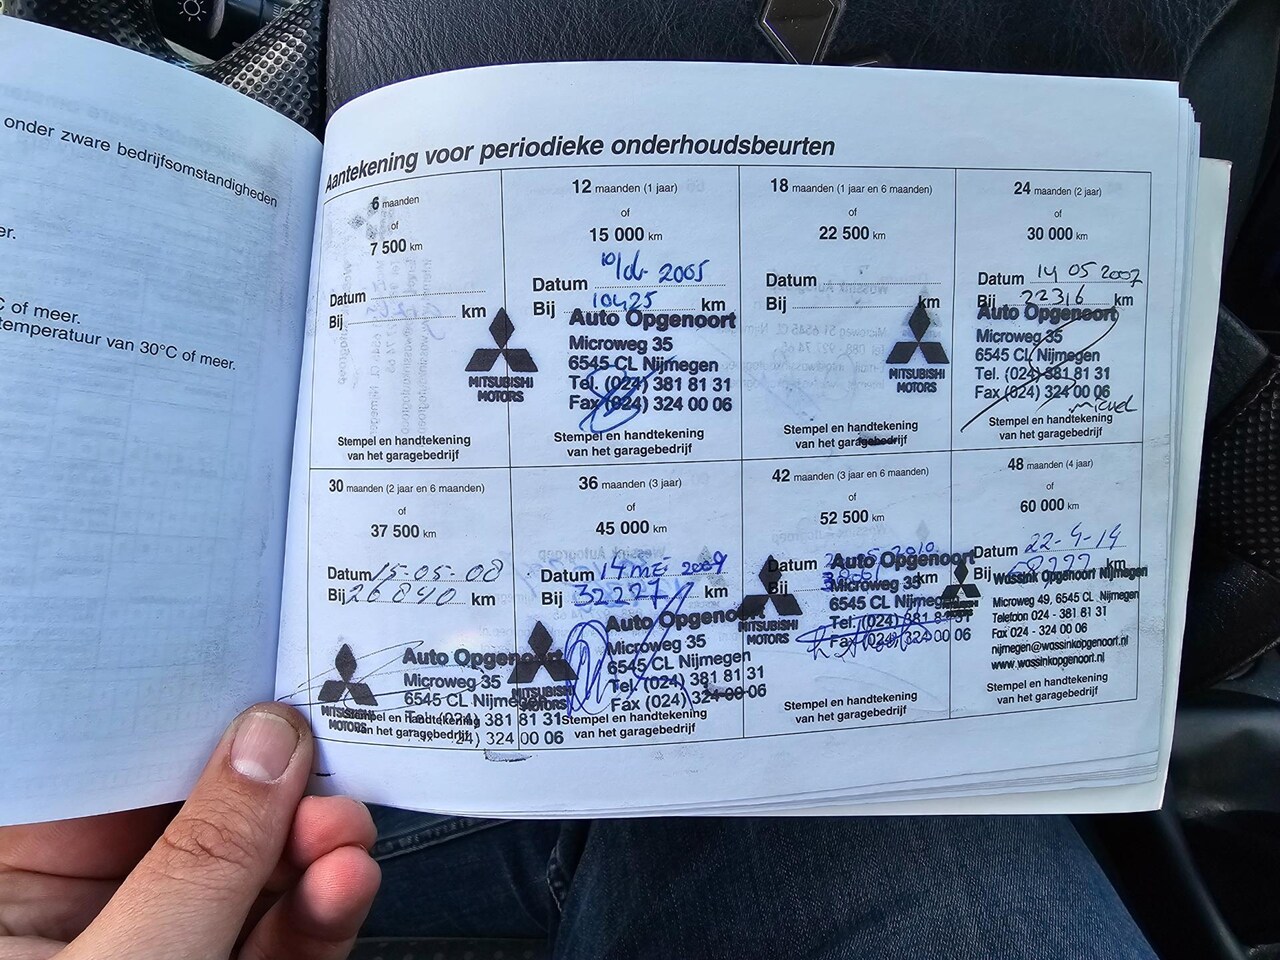 onder zware bedrijfsomstandigheden
er.
C of meer.
temperatuur van 30°C of meer.
Aantekening voor periodieke onderhoudsbeurten
6 maanden
of
7 500 km
Datum
Bij km
Stempel en handtekening
van het garagebedrijf
12 maanden (1 jaar)
of
15 000 km
Datum 2005
Bij 10425 km
MITSUBISHI
MOTORS
Auto Opgenoort
Microweg 35
6545 CL Nijmegen
Tel. (024) 381 81 31
Fax (024) 324 00 06
Stempel en handtekening
van het garagebedrijf
18 maanden (1 jaar en 6 maanden)
of
22 500 km
Datum
Bij km
Stempel en handtekening
van het garagebedrijf
24 maanden (2 jaar)
of
30 000 km
Datum 14 05 2007
Bij 22316 km
MITSUBISHI
MOTORS
Auto Opgenoort
Microweg 35
6545 CL Nijmegen
Tel. (024) 381 81 31
Fax (024) 324 00 06
Stempel en handtekening
van het garagebedrijf
30 maanden (2 jaar en 6 maanden)
of
37 500 km
Datum 15-05-08
Bij 26840 km
MITSUBISHI
MOTORS
Auto Opgenoort
Microweg 35
6545 CL Nijmegen
Tel. (024) 381 81 31
24) 324 00 06
Stempel en handtekening
van het garagebedrijf
36 maanden (3 jaar)
of
45 000 km
Datum 14 mei 2009
Bij 32227 km
MITSUBISHI
MOTORS
Auto Opgenoort
Microweg 35
6545 CL Nijmegen
Tel. (024) 381 81 31
Fax (024) 324 00 06
Stempel en handtekening
van het garagebedrijf
42 maanden (3 jaar en 6 maanden)
of
52 500 km
Datum 2010
Bij km
MITSUBISHI
MOTORS
Auto Opgenoort
Microweg 35
6545 CL Nijmegen
Tel. (024) 381 81 31
Fax (024) 324 00 06
Stempel en handtekening
van het garagebedrijf
48 maanden (4 jaar)
of
60 000 km
Datum 22-4-14
Bij
Wassink Opgenoort Nijmegen
Microweg 49, 6545 CL Nijmegen
Telefoon 024 - 381 81 31
Fax 024 - 324 00 06
nijmegen@wassinkopgenoort.nl
www.wassinkopgenoort.nl
Stempel en handtekening
van het garagebedrijf